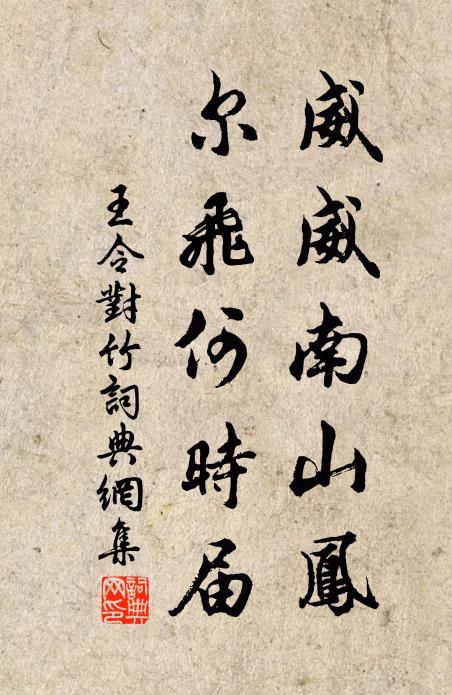 威威南山鳳
尔飛何時届
王令對竹詞典網集
詞典網印